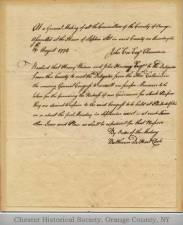 At a General Meeting of all the Committees of the County of Orange
at the House of Stephen Slot in said County on
16th August 1774
John Coe Esqr Chairman
Resolved that Henry Wisner and John Haring Esqrs be The Delegates
from this County to meet the Delegates from the other Counties in
the ensuing General Congress to consult on proper Measures to be
taken for the procuring the Redress of our Grievances for which Purpose
they are desired to repair to the next Congress to be held at Philadelphia
on or about the first Monday in September next or at such
other Time and Place as shall be agreed on for that Purpose
By Order of the Meeting
Clerk
Chester Historical Society, Orange County, NY